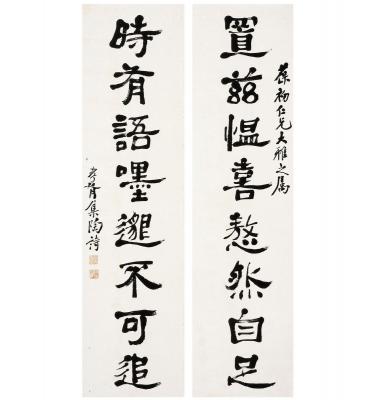 葆初仁兄大雅之属
置兹愠喜慠然自足
時有語嚜邈不可追
孝胥集陶詩